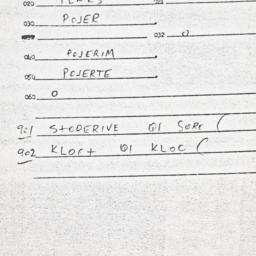 020
030 POJER
032 0
040 POJERIM
050 POJERTE
060 0
901 STODERIVE Q1 SORC (
902 KLOCT Q1 KLOC (